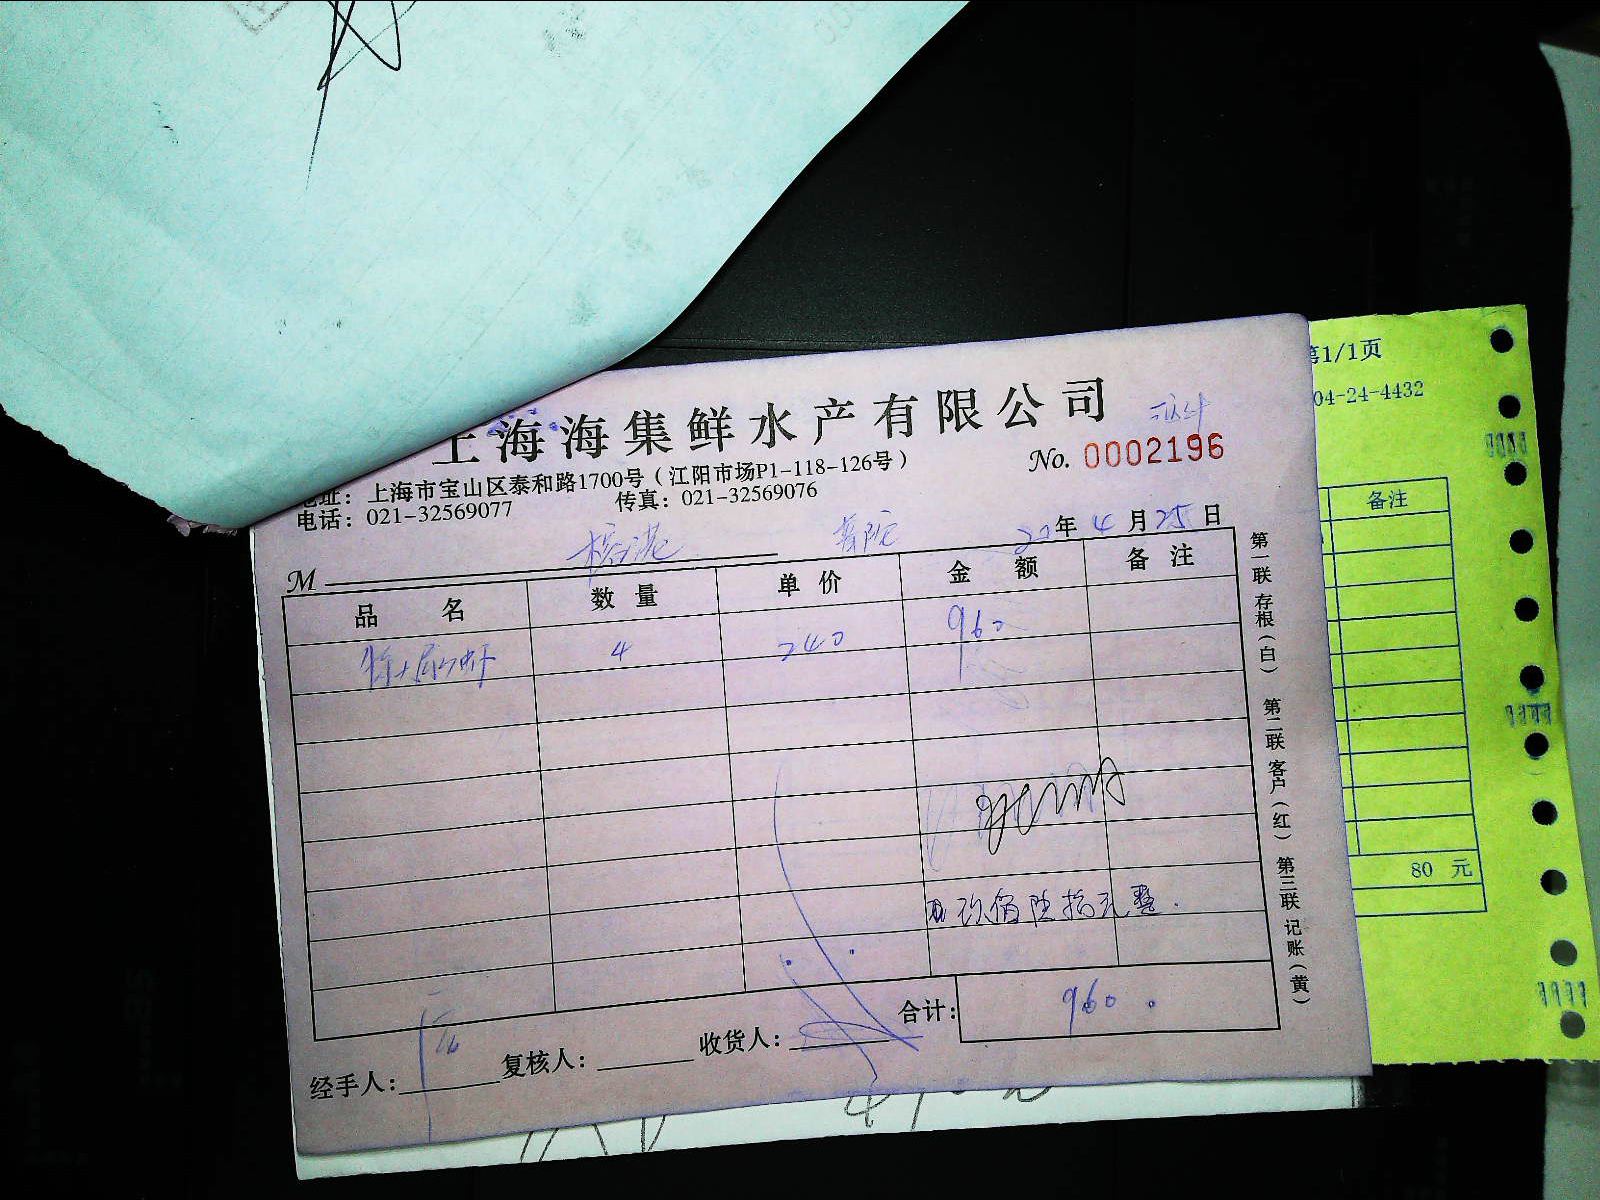 上海海集鲜水产有限公司
No. 0002196
地址：上海市宝山区泰和路1700号（江阳市场P1-118-126号）
电话：021-32569077 传真：021-32569076
20年4月25日
M
品名 数量 单价 金额 备注
4 240 960
玖佰陆拾元整.
合计： 960.
经手人： 复核人： 收货人：
第一联 存根（白） 第二联 客户（红） 第三联 记账（黄）
第1/1页
04-24-4432
备注
80 元